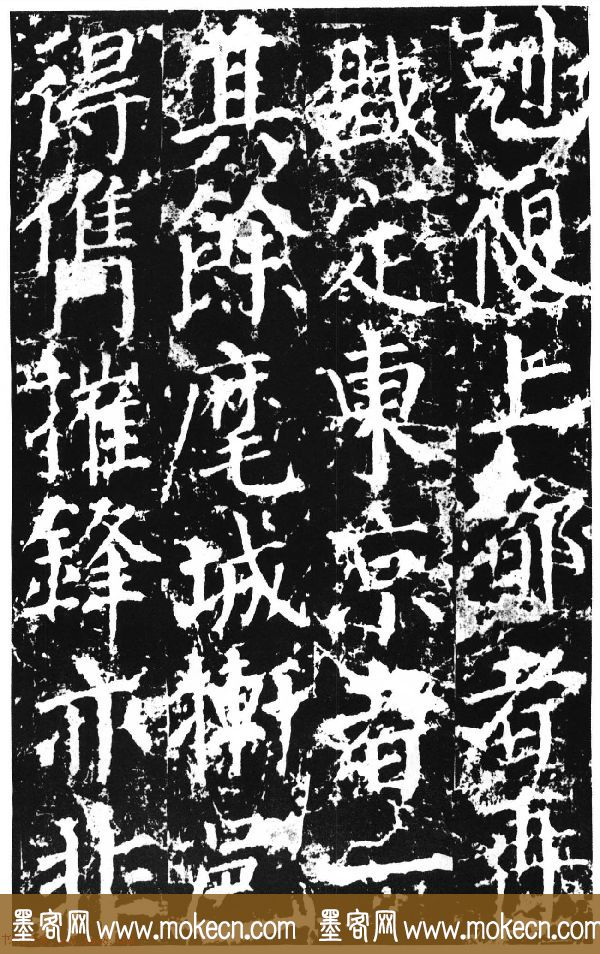 尅復上都者再
戡定東京者一
其餘麾城摲邑
得儁摧鋒亦非
墨客网 www.mokecn.com 墨客网 www.mokecn.com